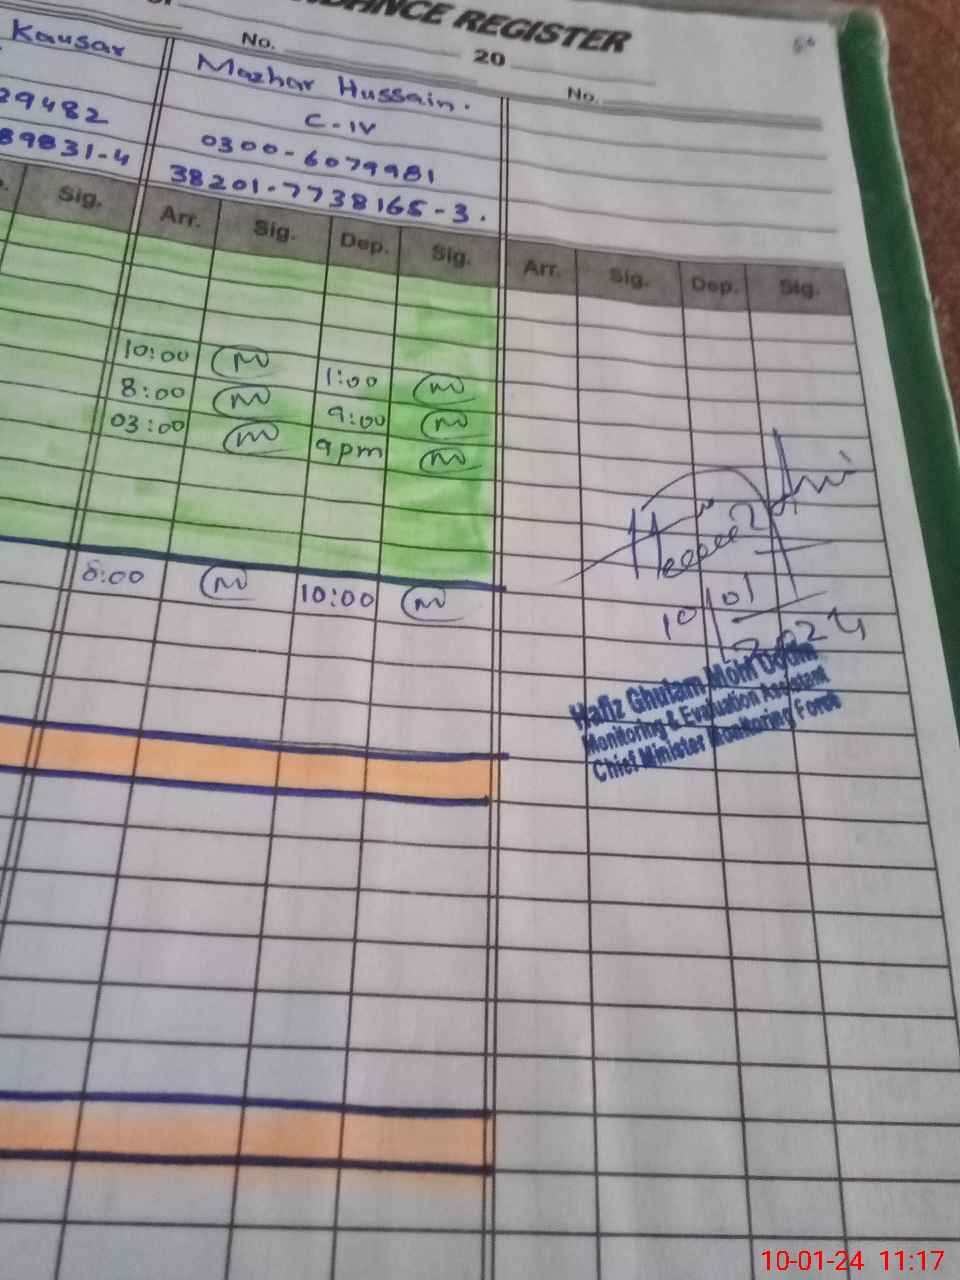 DANCE REGISTER
No. 20
No.
Kausar
Mazhar Hussain.
C-IV
29482
0300-6079981
89831-4
38201-7738165-3.
Sig. Arr. Sig. Dep. Sig. Arr. Sig. Dep. Sig.
10:00 1:00
8:00 9:00
03:00 9pm
8:00 10:00
10/01/2024
Hafiz Ghulam Mohi Ud Din
Monitoring & Evaluation Assistant
Chief Minister Monitoring Force
10-01-24 11:17